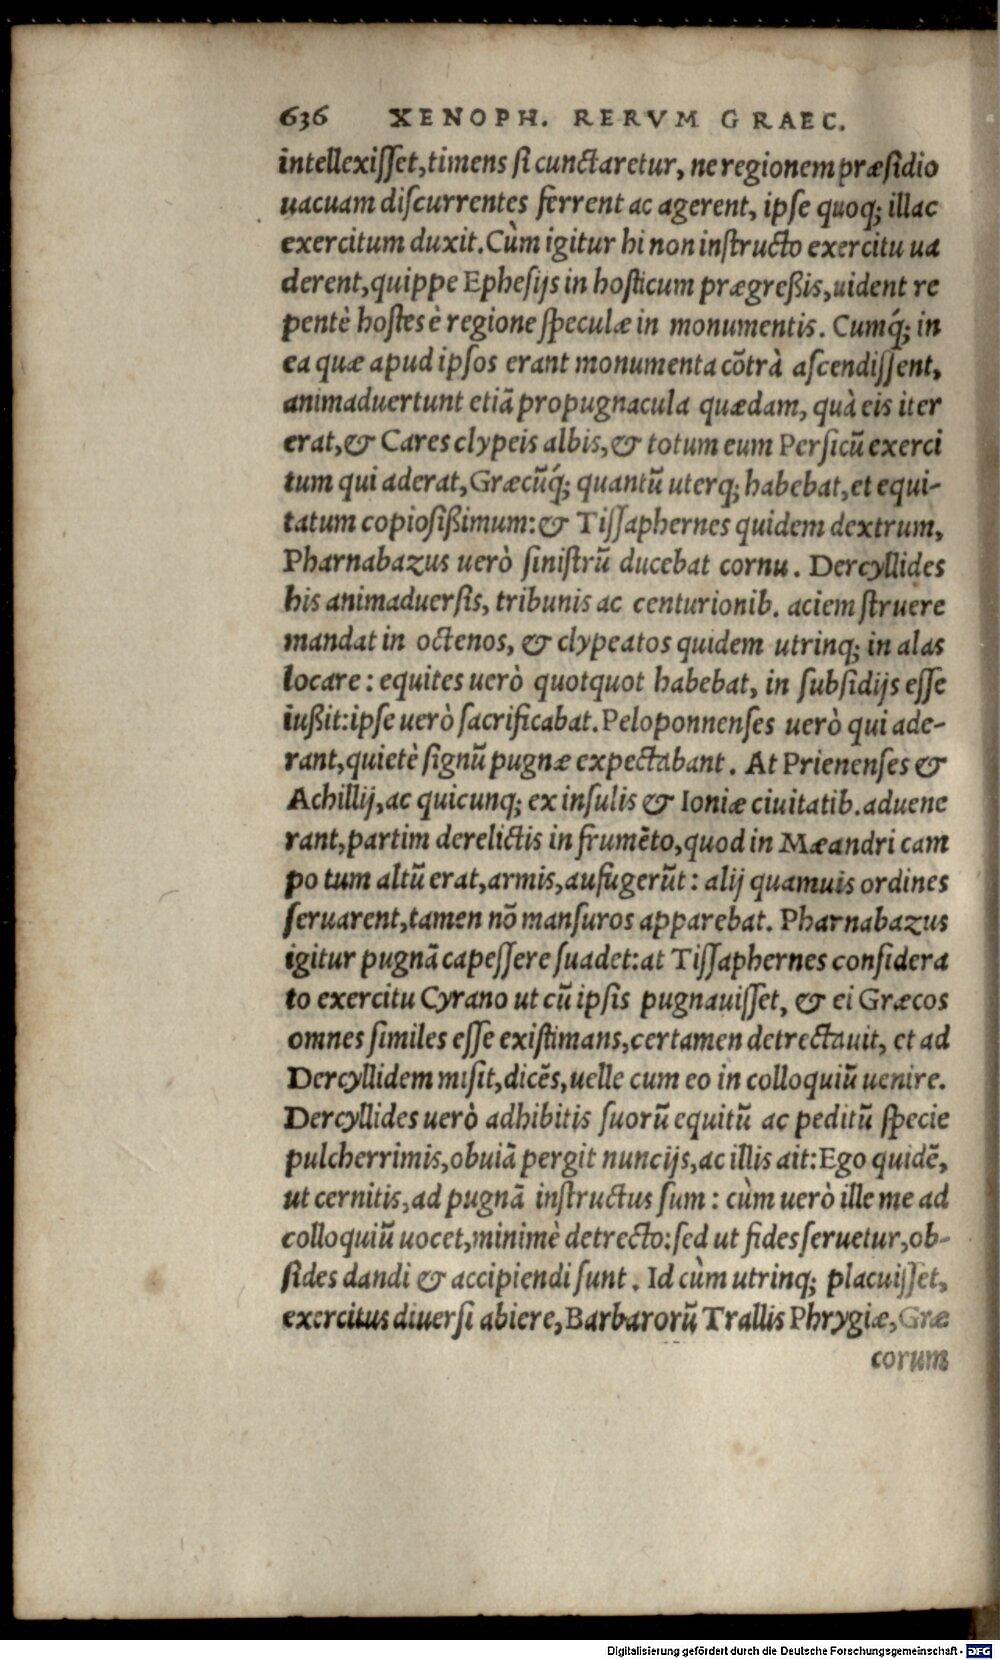 636 XENOPH. RERVM GRAEC.
intellexisset, timens si cunctaretur, ne regionem præsidio
uacuam discurrentes ferrent ac agerent, ipse quoq; illac
exercitum duxit. Cùm igitur hi non instructo exercitu ua
derent, quippe Ephesijs in hosticum prægreßis, uident re
pentè hostes è regione speculæ in monumentis. Cumq́; in
ea quæ apud ipsos erant monumenta cõtrà ascendissent,
animaduertunt etiã propugnacula quædam, quà eis iter
erat, & Cares clypeis albis, & totum eum Persicũ exerci
tum qui aderat, Græcũq́; quantũ uterq; habebat, et equi-
tatum copiosißimum: & Tissaphernes quidem dextrum,
Pharnabazus uerò sinistrũ ducebat cornu. Dercyllides
his animaduersis, tribunis ac centurionib. aciem struere
mandat in octenos, & clypeatos quidem utrinq; in alas
locare: equites uerò quotquot habebat, in subsidijs esse
iußit: ipse uerò sacrificabat. Peloponnenses uerò qui ade-
rant, quietè signũ pugnæ expectabant. At Prienenses &
Achillij, ac quicunq; ex insulis & Ioniæ ciuitatib. aduene
rant, partim derelictis in frumẽto, quod in Mæandri cam
po tum altũ erat, armis, aufugerũt: alij quamuis ordines
seruarent, tamen nõ mansuros apparebat. Pharnabazus
igitur pugnã capessere suadet: at Tissaphernes considera
to exercitu Cyrano ut cũ ipsis pugnauisset, & ei Græcos
omnes similes esse existimans, certamen detrectauit, et ad
Dercyllidem misit, dicẽs, uelle cum eo in colloquiũ uenire.
Dercyllides uerò adhibitis suorũ equitũ ac peditũ specie
pulcherrimis, obuiã pergit nuncijs, ac illis ait: Ego quidẽ,
ut cernitis, ad pugnã instructus sum: cùm uerò ille me ad
colloquiũ uocet, minimè detrecto: sed ut fides seruetur, ob-
sides dandi & accipiendi sunt. Id cùm utrinq; placuisset,
exercitus diuersi abiere, Barbarorũ Trallis Phrygiæ, Græ
corum
Digitalisierung gefördert durch die Deutsche Forschungsgemeinschaft - DFG